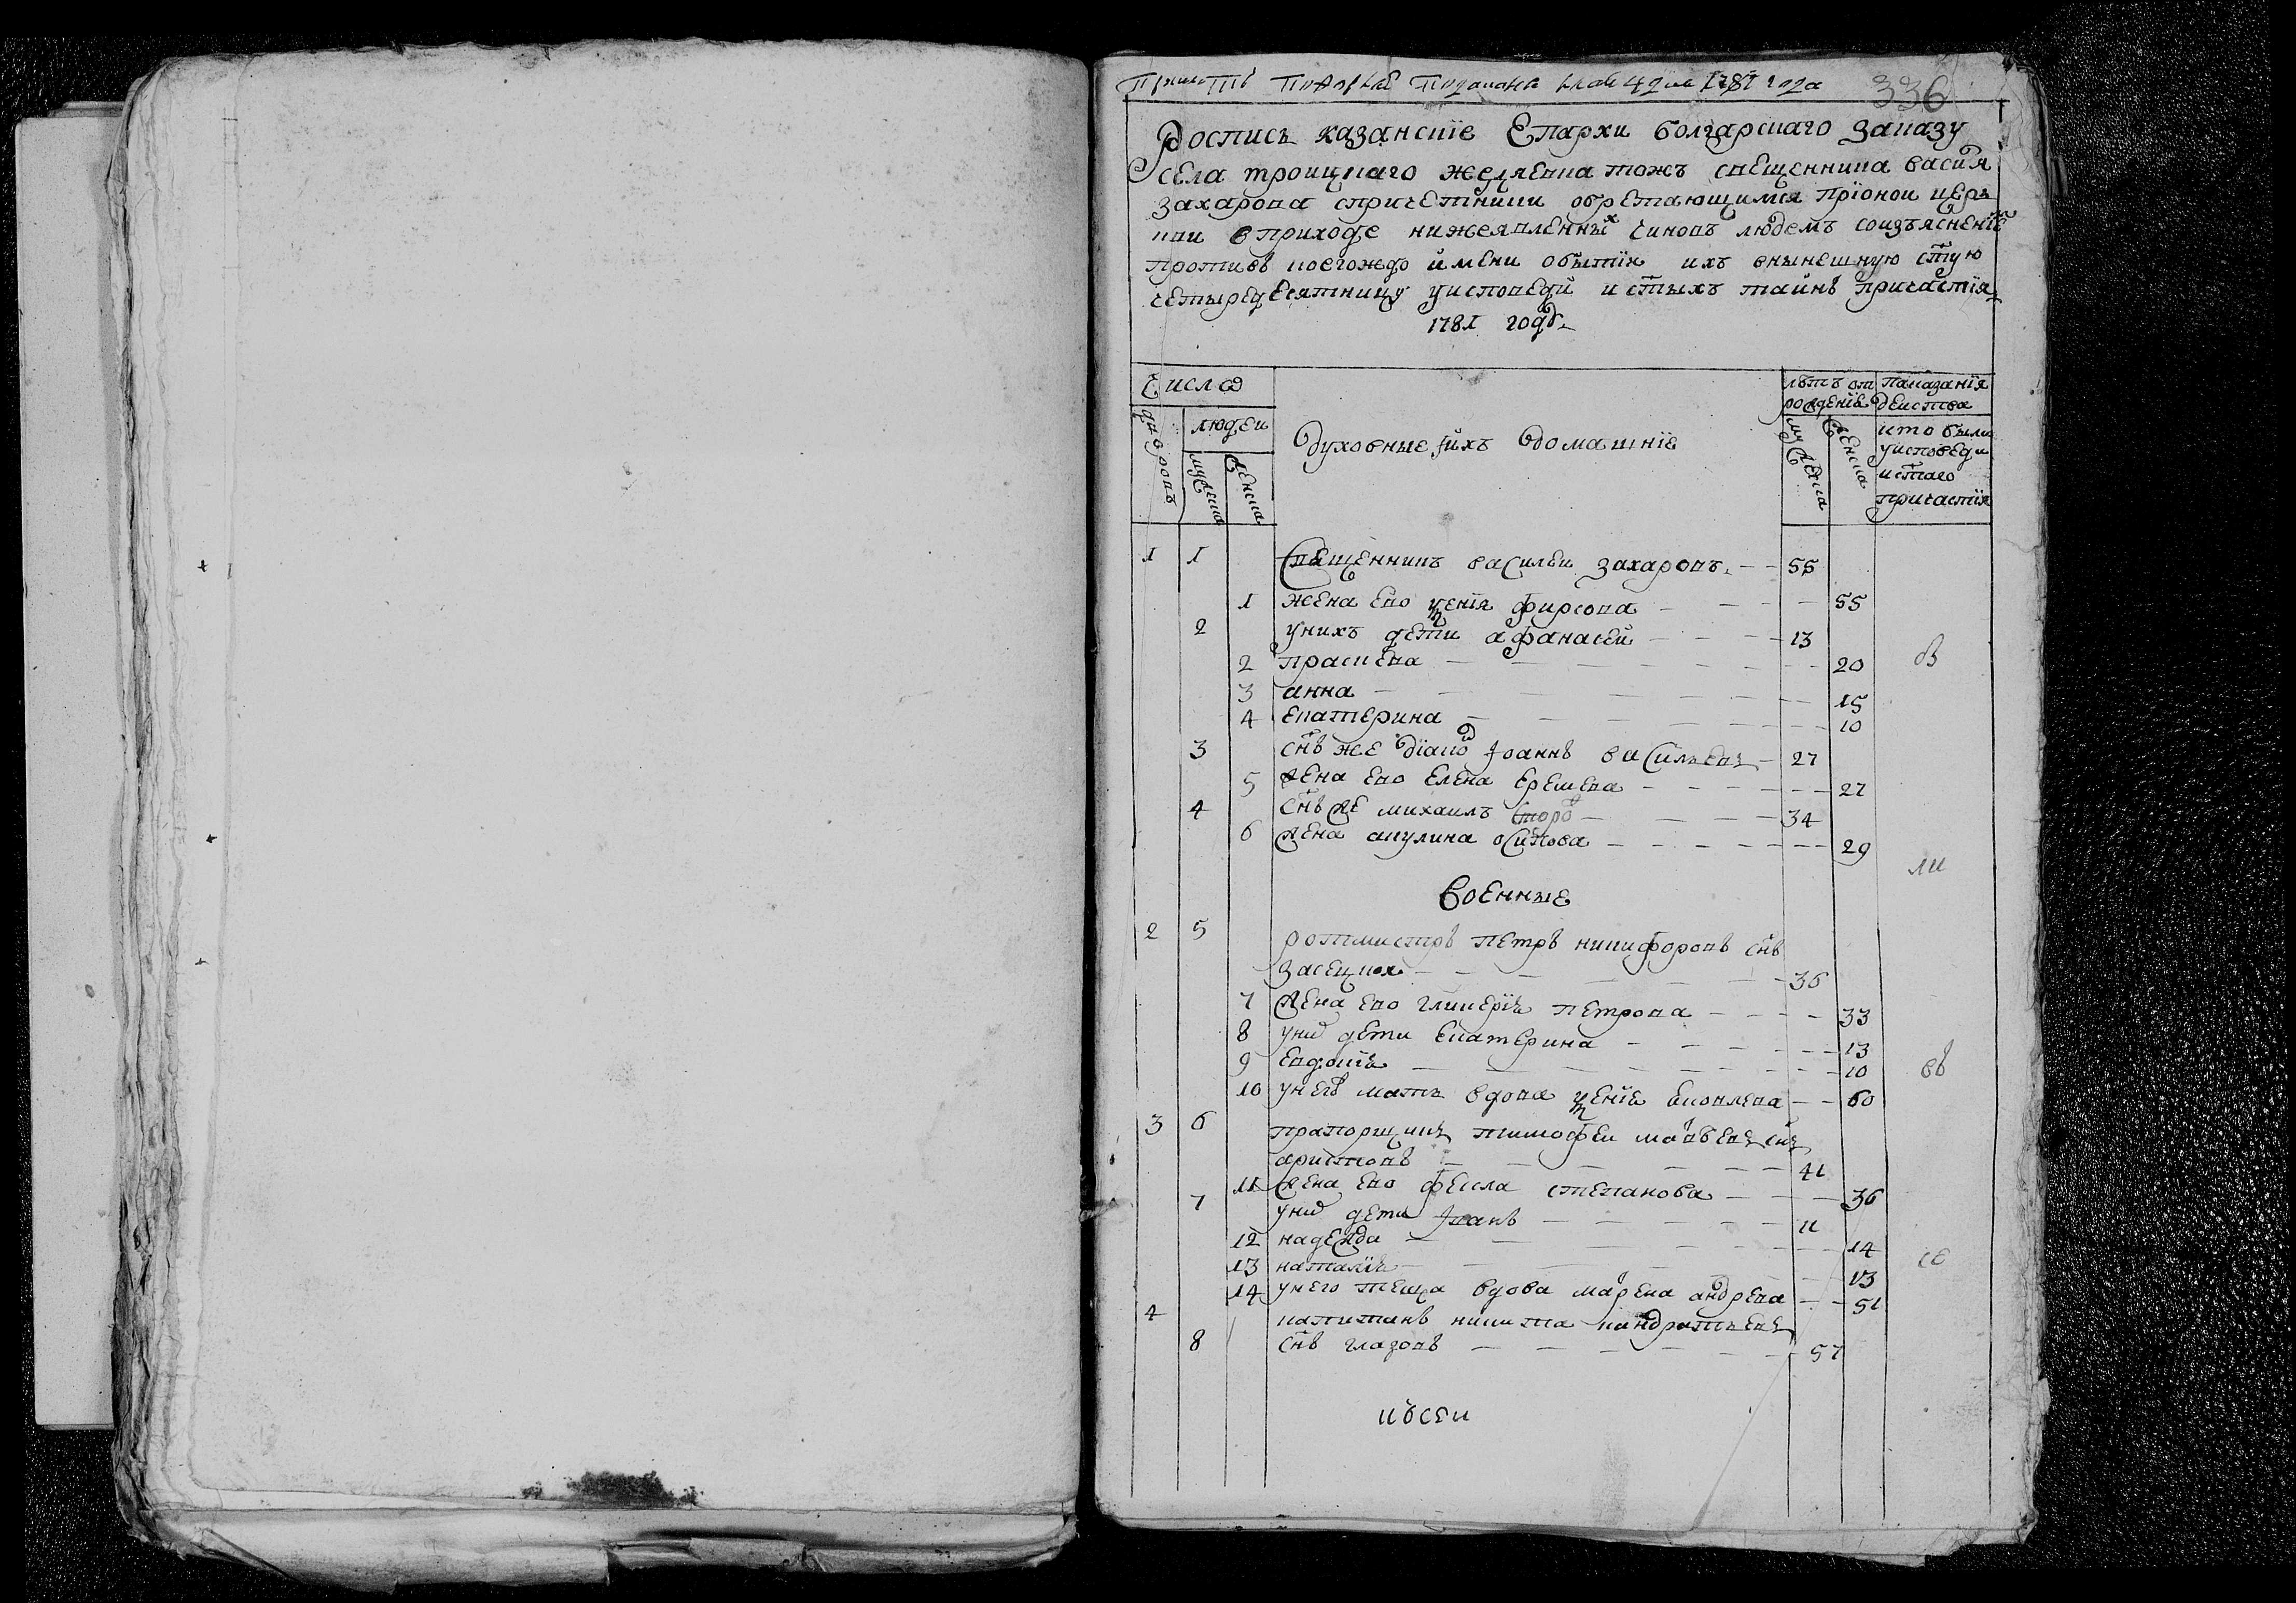 336
Роспись казанские Епархи болгарскаго заказу
села троицкаго желяевка тожъ священника васия
захарова спричетники обретающимся прионой церь
кви в приходе нижеявленных чиновъ людемъ соизъяснение
противъ коегождо имени обытия ихъ внынешную стую
четыредесятницу уисповеди истыхъ таинъ причастия
1781 годъ
Числѡ
дворовъ
людеи
мужеска
женска
духовные ихъ домашние
лѣтъ от рождения
мужеска
женска
показания действа
кто были уисповеди истаго причастия
1 1 Священникъ василеи захаровъ. 55
1 жена ево ксения фирсова 55
2 унихъ дети афанасей 13
2 прасковя 20
3 анна 15
4 Екатерина 10
3 снъ же дияко Iоаннъ василъевъ 27
5 жена ево Елена Ерешева 27
4 снъ же михаилъ 34
6 жена акулина осипова 29
Военные
2 5 ротмистръ петръ никифоровъ снъ
засецкои 36
7 жена ево гликерия петрова 33
8 уних дети Екатерина 13
9 Евдокия 10
10 унего мать вдова ксения яковлева 60
3 6 прапорщикъ тимофеи матвеевъ снъ
аристовъ 41
11 жена ево фекла степанова 36
7 уних дети Iванъ 11
12 надежда 14
13 наталия 13
14 унего теща вдова марена андрева 51
4 капитанъ никита кандратьевъ
8 снъ глазовъ 57
в
ли
въ
се